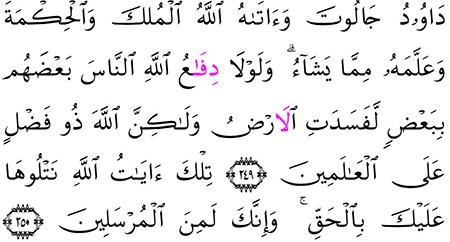 دَاوُۥدُ جَالُوتَ وَءَاتَىٰهُ ٱللَّهُ ٱلْمُلْكَ وَٱلْحِكْمَةَ
وَعَلَّمَهُۥ مِمَّا يَشَآءُ ۗ وَلَوْلَا دِفَـٰعُ ٱللَّهِ ٱلنَّاسَ بَعْضَهُم
بِبَعْضٍ لَّفَسَدَتِ ٱلَارْضُ وَلَـٰكِنَّ ٱللَّهَ ذُو فَضْلٍ
عَلَى ٱلْعَـٰلَمِينَ ٢٤٩ تِلْكَ ءَايَـٰتُ ٱللَّهِ نَتْلُوهَا
عَلَيْكَ بِٱلْحَقِّ ۚ وَإِنَّكَ لَمِنَ ٱلْمُرْسَلِينَ ٢٥٠